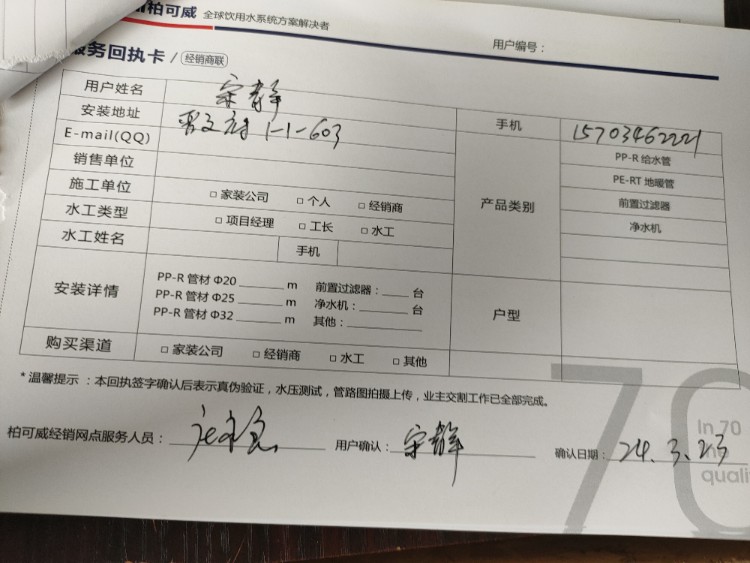 柏可威 全球饮用水系统方案解决者
用户编号：
服务回执卡 / 经销商联
用户姓名 宋静
安装地址 1-1-603 手机 15703462221
E-mail(QQ)
销售单位
施工单位 □ 家装公司 □ 个人 □ 经销商
水工类型 □ 项目经理 □ 工长 □ 水工
水工姓名 手机
产品类别
PP-R 给水管
PE-RT 地暖管
前置过滤器
净水机
安装详情
PP-R 管材 Φ20 ______ m 前置过滤器：____ 台
PP-R 管材 Φ25 ______ m 净水机：____ 台
PP-R 管材 Φ32 ______ m 其他：______
户型
购买渠道 □ 家装公司 □ 经销商 □ 水工 □ 其他
* 温馨提示：本回执签字确认后表示真伪验证，水压测试，管路图拍摄上传，业主交割工作已全部完成。
柏可威经销网点服务人员： 用户确认：宋静 确认日期：24.3.23
70
In 70
no
quali